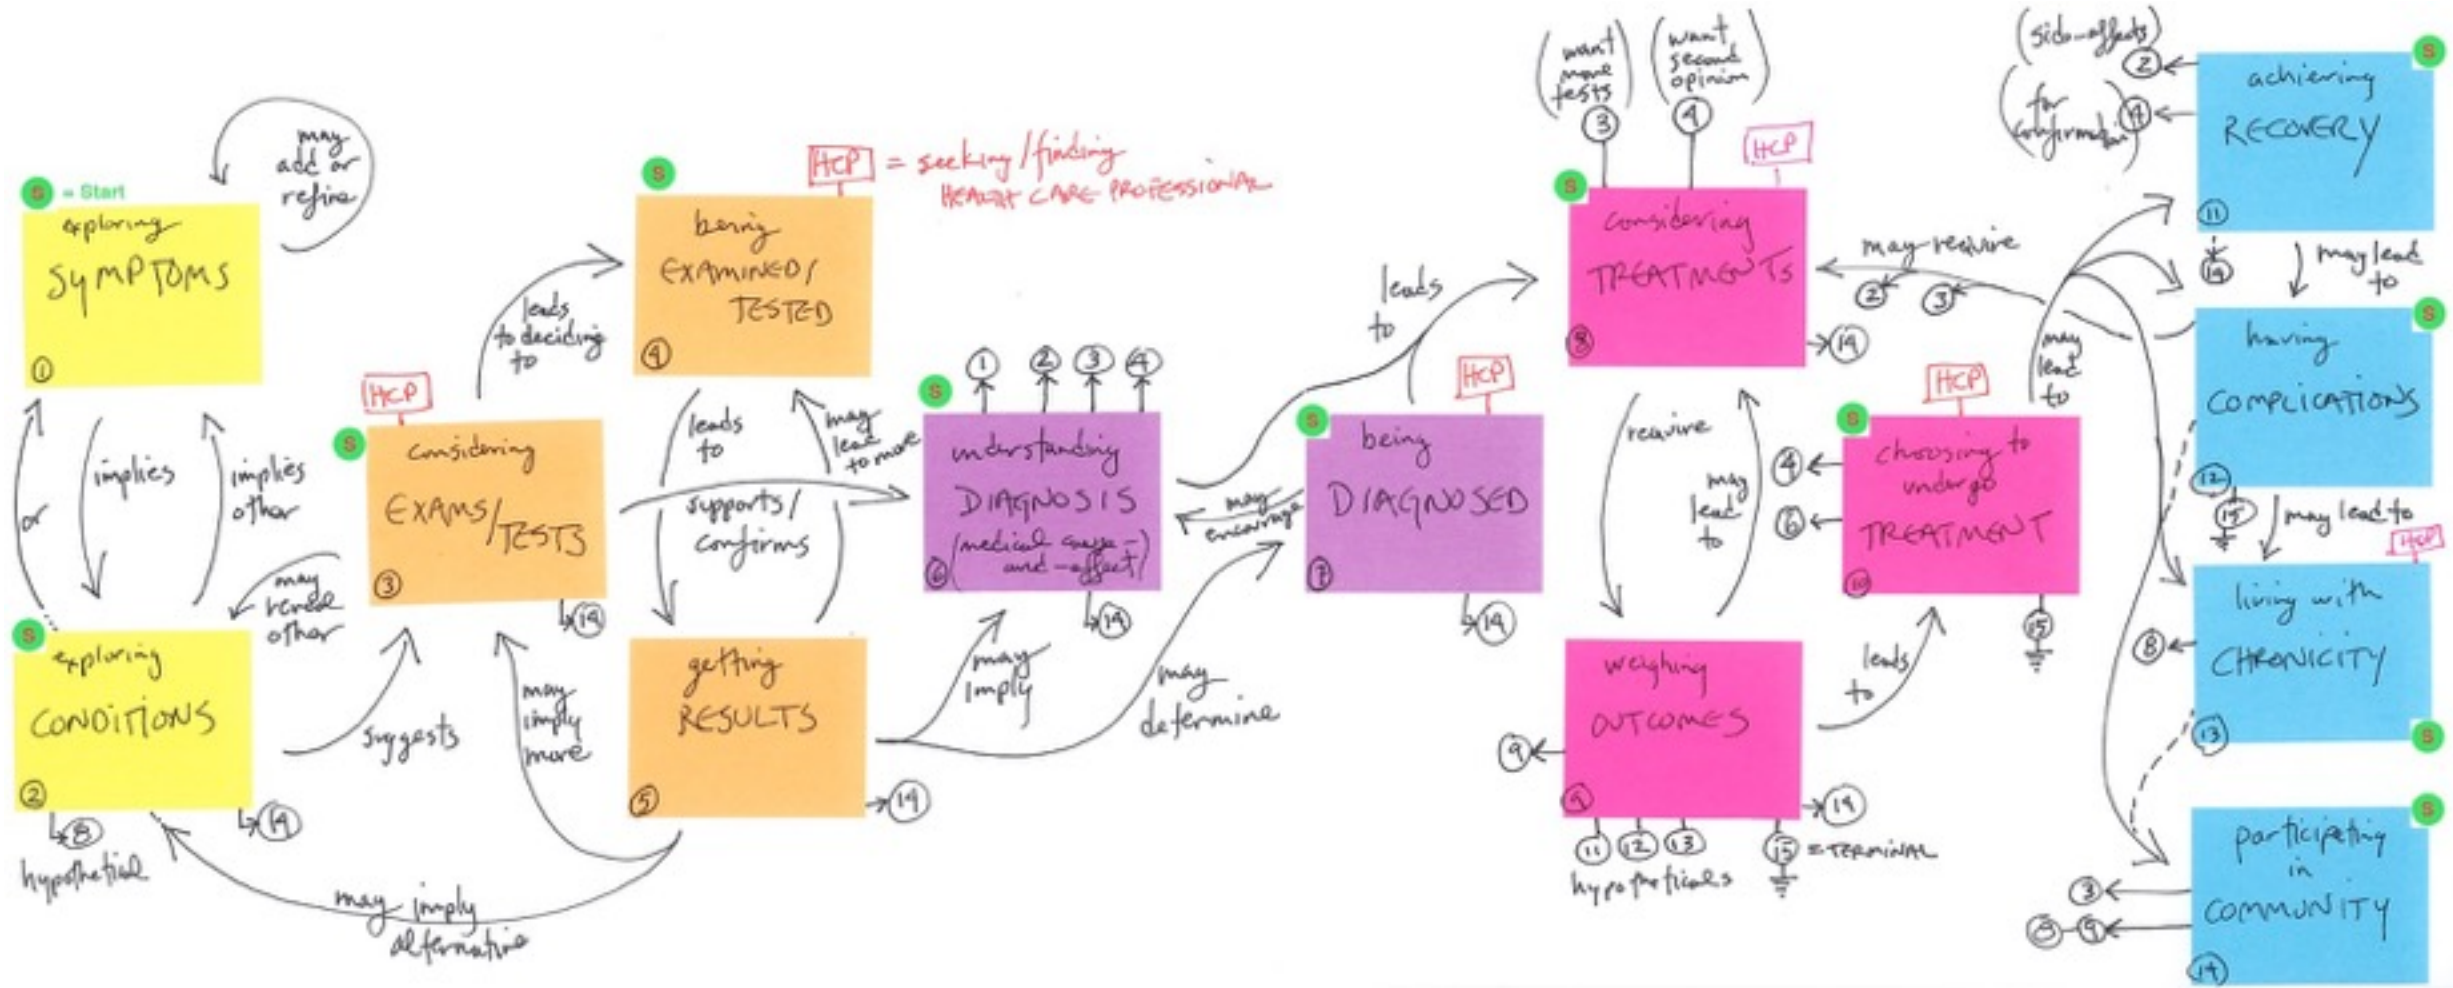 S = Start
exploring
SYMPTOMS
1
may
add or
refine
or
implies
implies
other
S
exploring
CONDITIONS
2
8
hypothetical
14
suggests
may
reveal
other
HCP
S
considering
EXAMS/
TESTS
3
14
leads
to deciding
to
S
HCP = seeking/finding
HEALTH CARE PROFESSIONAL
being
EXAMINED/
TESTED
4
leads
to
may
lead
to more
supports/
confirms
getting
RESULTS
5
14
may
imply
more
may imply
alternative
may
imply
may
determine
1 2 3 4
S
understanding
DIAGNOSIS
(medical cause-
and-effect)
6
14
may
encourage
leads
to
HCP
S
being
DIAGNOSED
7
14
(want
more
tests)
3
(want
second
opinion)
4
HCP
S
considering
TREATMENTS
8
14
require
may
lead
to
weighing
OUTCOMES
9
9
14
11 12 13
hypotheticals
15 = TERMINAL
leads
to
may require
2 3
HCP
S
choosing to
undergo
TREATMENT
10
4
6
15
may
lead
to
(side-effects)
2
(for
confirmation)
4
S
achieving
RECOVERY
11
14
may lead
to
S
having
COMPLICATIONS
12
15
may lead to
HCP
living with
CHRONICITY
13
8
S
S
participating
in
COMMUNITY
14
3
8-9